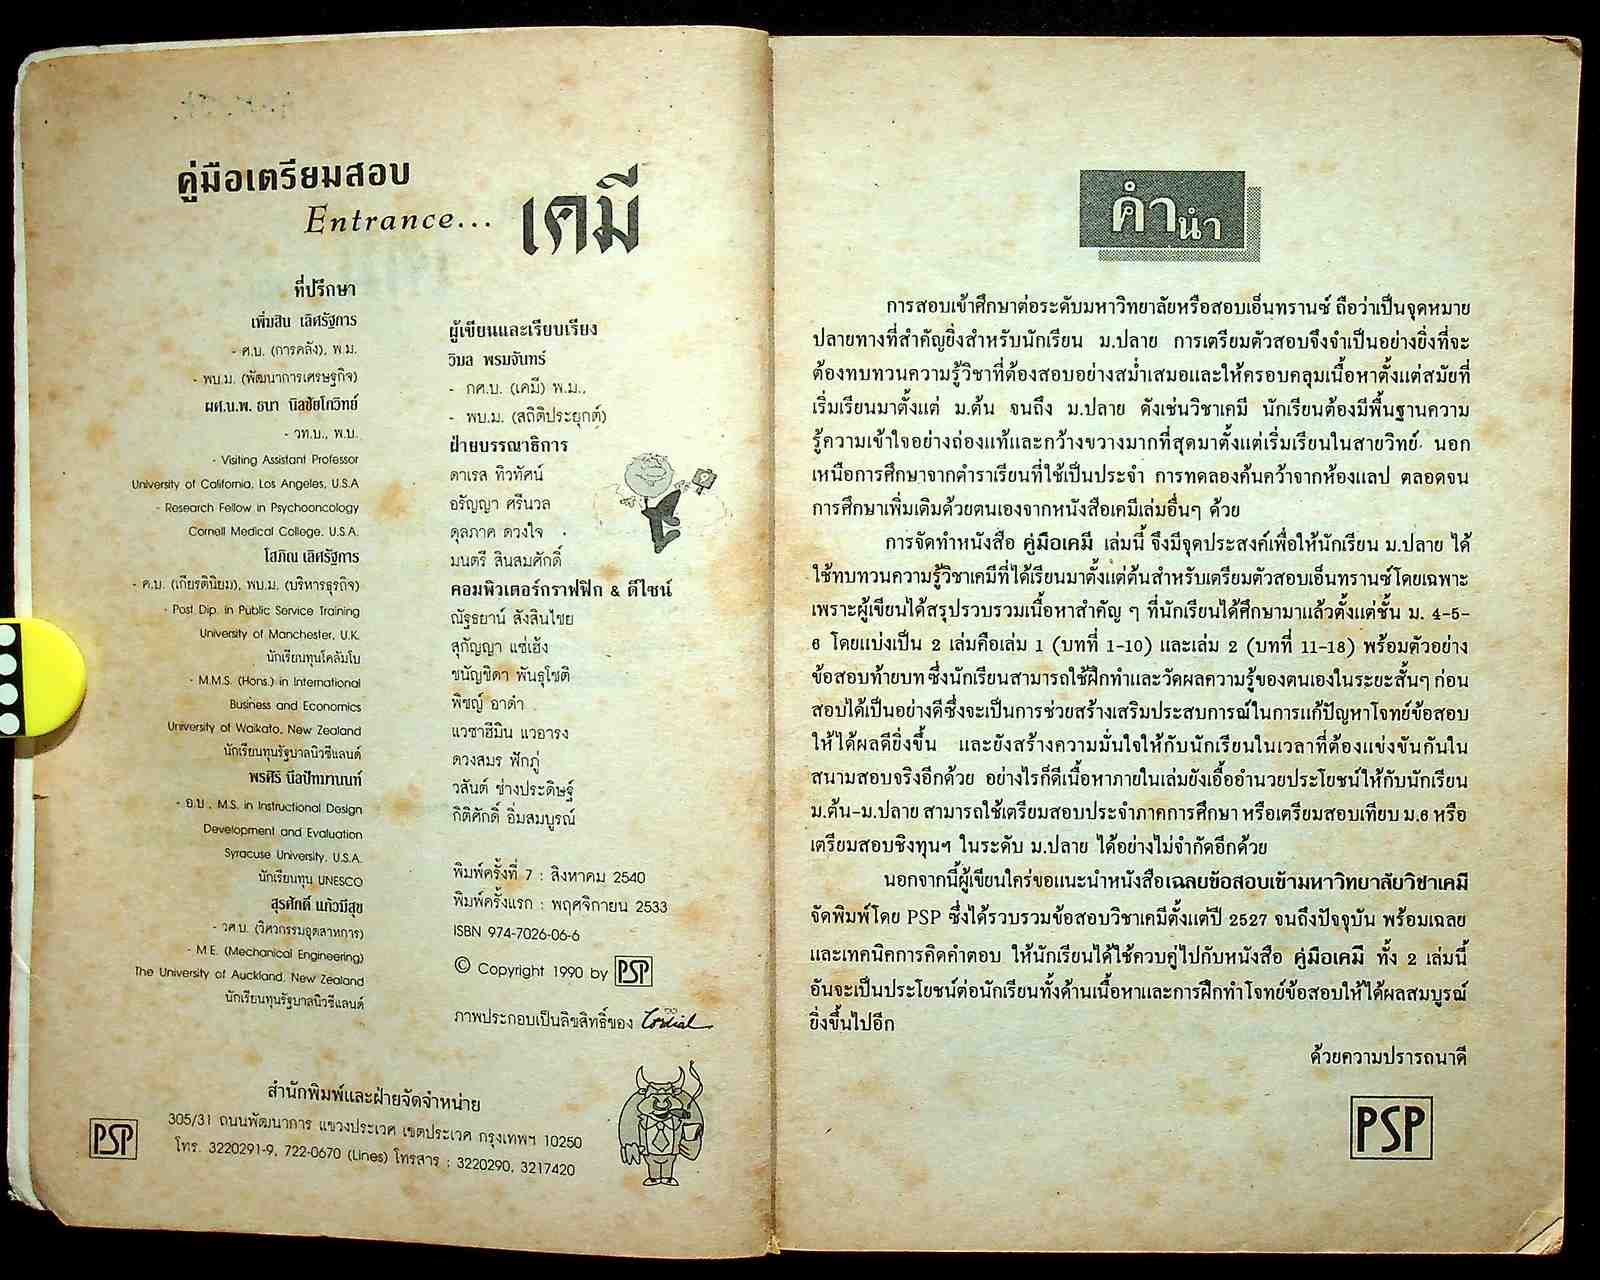 คู่มือเตรียมสอบ
Entrance... เคมี
ที่ปรึกษา
เพิ่มสิน เลิศรัฐการ
- ศ.บ. (การคลัง), พ.ม.
- พบ.ม. (พัฒนาการเศรษฐกิจ)
ผศ.น.พ. ธนา นิลชัยโกวิทย์
- วท.บ., พ.บ.
- Visiting Assistant Professor
University of California, Los Angeles, U.S.A
- Research Fellow in Psychooncology
Cornell Medical College, U.S.A.
โสภิณ เลิศรัฐการ
- ศ.บ. (เกียรตินิยม), พบ.ม. (บริหารธุรกิจ)
- Post Dip. in Public Service Training
University of Manchester, U.K.
นักเรียนทุนโคลัมโบ
- M.M.S. (Hons.) in International
Business and Economics
University of Waikato, New Zealand
นักเรียนทุนรัฐบาลนิวซีแลนด์
พรศิริ นิลปัทมานนท์
- อ.บ., M.S. in Instructional Design
Development and Evaluation
Syracuse University, U.S.A.
นักเรียนทุน UNESCO
สุรศักดิ์ แก้วมีสุข
- วศ.บ. (วิศวกรรมอุตสาหการ)
- M.E. (Mechanical Engineering)
The University of Auckland, New Zealand
นักเรียนทุนรัฐบาลนิวซีแลนด์
ผู้เขียนและเรียบเรียง
วิมล พรมจันทร์
- กศ.บ. (เคมี) พ.ม.,
- พบ.ม. (สถิติประยุกต์)
ฝ่ายบรรณาธิการ
ดาเรส ทิวทัศน์
อรัญญา ศรีนวล
ดุลภาค ดวงใจ
มนตรี สินสมศักดิ์
คอมพิวเตอร์กราฟฟิก & ดีไซน์
ณัฐธยาน์ สังสินไชย
สุกัญญา แซ่เฮ้ง
ชนัญชิดา พันธุโชติ
พิชญ์ อาดำ
แวซาฮีมิน แวอารง
ดวงสมร ฟักภู่
วสันต์ ช่างประดิษฐ์
กิติศักดิ์ อิ่มสมบูรณ์
พิมพ์ครั้งที่ 7 : สิงหาคม 2540
พิมพ์ครั้งแรก : พฤศจิกายน 2533
ISBN 974-7026-06-6
© Copyright 1990 by PSP
ภาพประกอบเป็นลิขสิทธิ์ของ Cordial
สำนักพิมพ์และฝ่ายจัดจำหน่าย
PSP
305/31 ถนนพัฒนาการ แขวงประเวศ เขตประเวศ กรุงเทพฯ 10250
โทร. 3220291-9, 722-0670 (Lines) โทรสาร : 3220290, 3217420
คำนำ
การสอบเข้าศึกษาต่อระดับมหาวิทยาลัยหรือสอบเอ็นทรานซ์ ถือว่าเป็นจุดหมาย
ปลายทางที่สำคัญยิ่งสำหรับนักเรียน ม.ปลาย การเตรียมตัวสอบจึงจำเป็นอย่างยิ่งที่จะ
ต้องทบทวนความรู้วิชาที่ต้องสอบอย่างสม่ำเสมอและให้ครอบคลุมเนื้อหาตั้งแต่สมัยที่
เริ่มเรียนมาตั้งแต่ ม.ต้น จนถึง ม.ปลาย ดังเช่นวิชาเคมี นักเรียนต้องมีพื้นฐานความ
รู้ความเข้าใจอย่างถ่องแท้และกว้างขวางมากที่สุดมาตั้งแต่เริ่มเรียนในสายวิทย์ นอก
เหนือการศึกษาจากตำราเรียนที่ใช้เป็นประจำ การทดลองค้นคว้าจากห้องแลป ตลอดจน
การศึกษาเพิ่มเติมด้วยตนเองจากหนังสือเคมีเล่มอื่นๆ ด้วย
การจัดทำหนังสือ คู่มือเคมี เล่มนี้ จึงมีจุดประสงค์เพื่อให้นักเรียน ม.ปลาย ได้
ใช้ทบทวนความรู้วิชาเคมีที่ได้เรียนมาตั้งแต่ต้นสำหรับเตรียมตัวสอบเอ็นทรานซ์โดยเฉพาะ
เพราะผู้เขียนได้สรุปรวบรวมเนื้อหาสำคัญ ๆ ที่นักเรียนได้ศึกษามาแล้วตั้งแต่ชั้น ม. 4-5-
6 โดยแบ่งเป็น 2 เล่มคือเล่ม 1 (บทที่ 1-10) และเล่ม 2 (บทที่ 11-18) พร้อมตัวอย่าง
ข้อสอบท้ายบท ซึ่งนักเรียนสามารถใช้ฝึกทำและวัดผลความรู้ของตนเองในระยะสั้นๆ ก่อน
สอบได้เป็นอย่างดีซึ่งจะเป็นการช่วยสร้างเสริมประสบการณ์ในการแก้ปัญหาโจทย์ข้อสอบ
ให้ได้ผลดียิ่งขึ้น และยังสร้างความมั่นใจให้กับนักเรียนในเวลาที่ต้องแข่งขันกันใน
สนามสอบจริงอีกด้วย อย่างไรก็ดีเนื้อหาภายในเล่มยังเอื้ออำนวยประโยชน์ให้กับนักเรียน
ม.ต้น-ม.ปลาย สามารถใช้เตรียมสอบประจำภาคการศึกษา หรือเตรียมสอบเทียบ ม.6 หรือ
เตรียมสอบชิงทุนฯ ในระดับ ม.ปลาย ได้อย่างไม่จำกัดอีกด้วย
นอกจากนี้ผู้เขียนใคร่ขอแนะนำหนังสือเฉลยข้อสอบเข้ามหาวิทยาลัยวิชาเคมี
จัดพิมพ์โดย PSP ซึ่งได้รวบรวมข้อสอบวิชาเคมีตั้งแต่ปี 2527 จนถึงปัจจุบัน พร้อมเฉลย
และเทคนิคการคิดคำตอบ ให้นักเรียนได้ใช้ควบคู่ไปกับหนังสือ คู่มือเคมี ทั้ง 2 เล่มนี้
อันจะเป็นประโยชน์ต่อนักเรียนทั้งด้านเนื้อหาและการฝึกทำโจทย์ข้อสอบให้ได้ผลสมบูรณ์
ยิ่งขึ้นไปอีก
ด้วยความปรารถนาดี
PSP